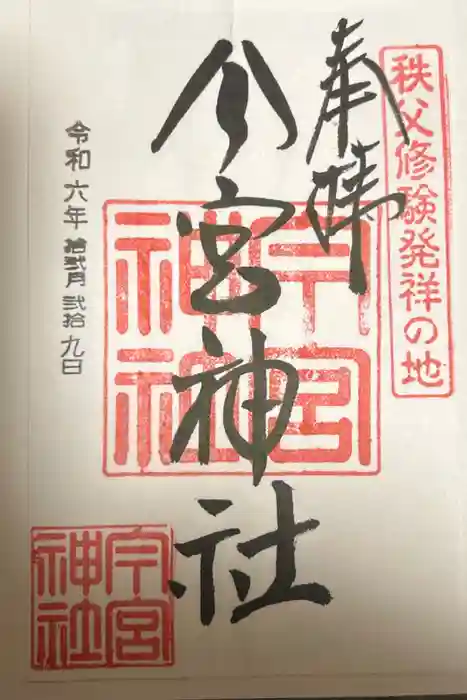 秩父修験発祥の地
奉拝
今宮神社
今宮神社
令和六年拾弐月弐拾九日
今宮神社